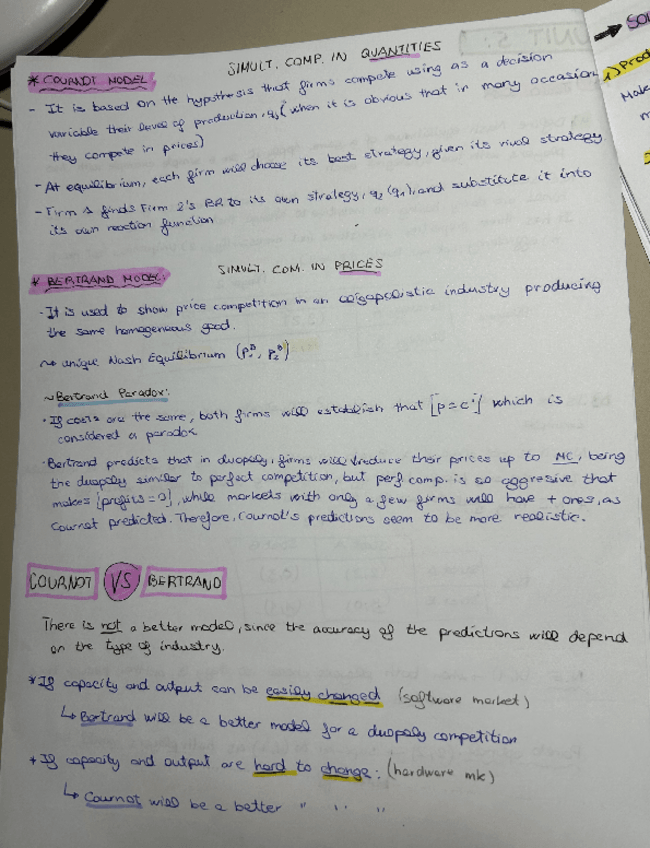 SIMULT. COMP. IN QUANTITIES
* COURNOT MODEL
- It is based on the hypothesis that firms compete using as a decision
variable their level of production, qi (when it is obvious that in many occasion
they compete in prices)
- At equilibrium, each firm will choose its best strategy, given its rival strategy
- Firm 1 finds Firm 2's BR to its own strategy, q2 (q1), and substitute it into
its own reaction function
SIMULT. COM. IN PRICES
* BERTRAND MODEL:
· It is used to show price competition in an oligopolistic industry producing
the same homogenous good.
~> unique Nash Equilibrium (P1ᴮ, P2ᴮ)
~ Bertrand Paradox:
· If costs are the same, both firms will establish that [p=c'] which is
considered a paradox
· Bertrand predicts that in duopoly, firms will reduce their prices up to MC, being
the duopoly similar to perfect competition, but perf comp. is so aggresive that
makes [profits = 0], while markets with only a few firms will have + ones, as
Cournot predicted. Therefore, Cournot's predictions seem to be more realistic.
COURNOT VS BERTRAND
There is not a better model, since the accuracy of the predictions will depend
on the type of industry.
* If capacity and output can be easily changed (software market)
↳ Bertrand will be a better model for a duopoly competition
* If capacity and output are hard to change: (hardware mk)
↳ Cournot will be a better " " "
→ Sou
1) Prod
Make